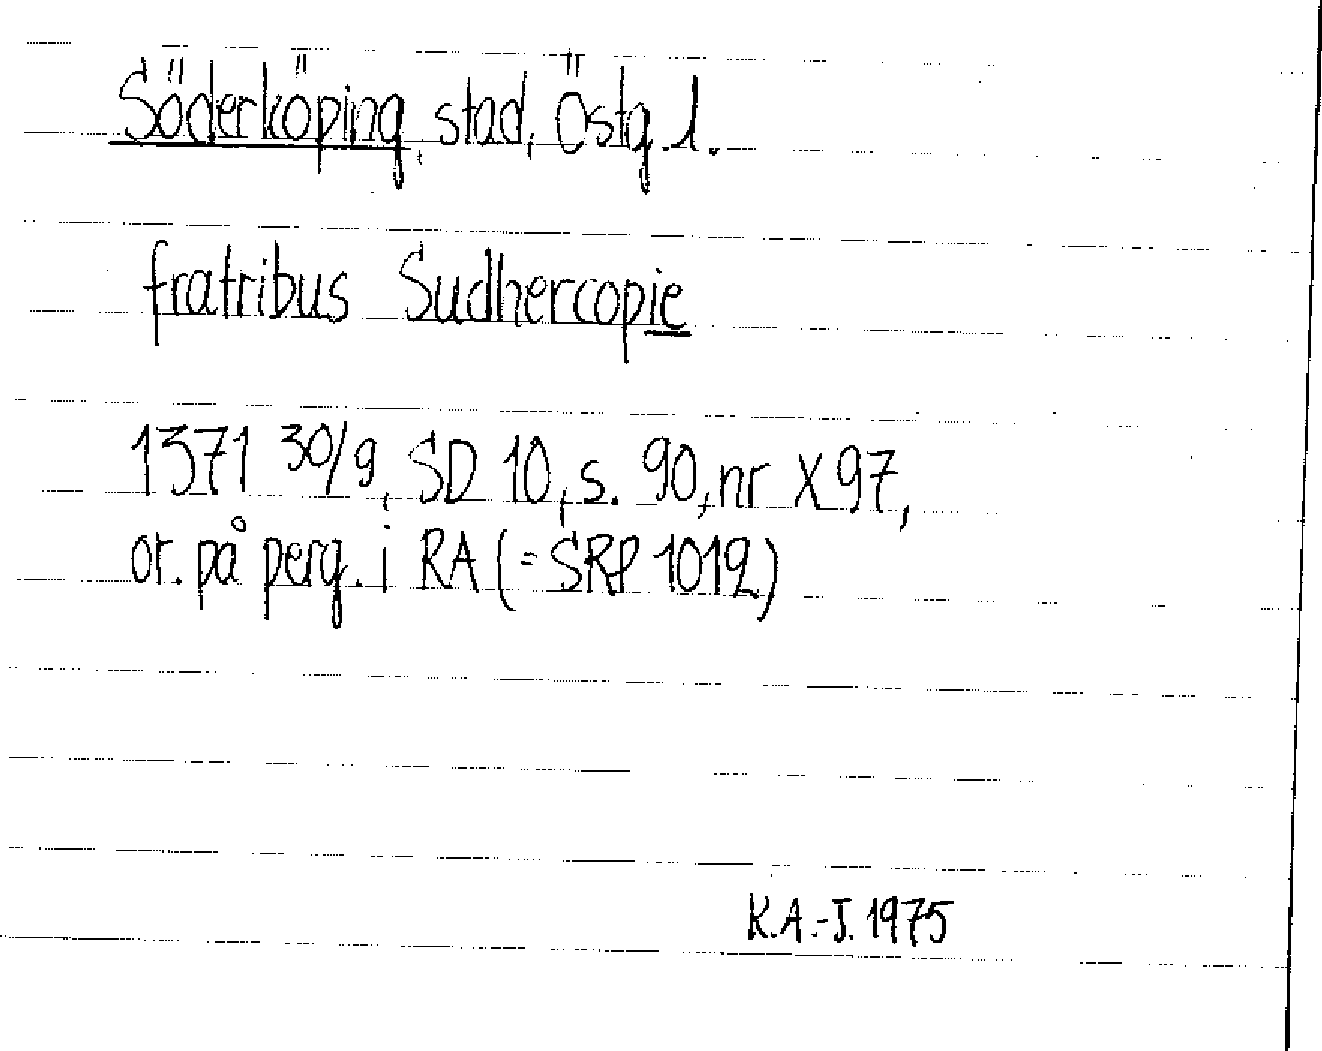 Söderköping, stad, Östg. l.
fratribus Sudhercopie
1371 30/9, SD 10, s. 90, nr X97,
or. på perg. i RA (= SRP 1012)
K.A.-J. 1975